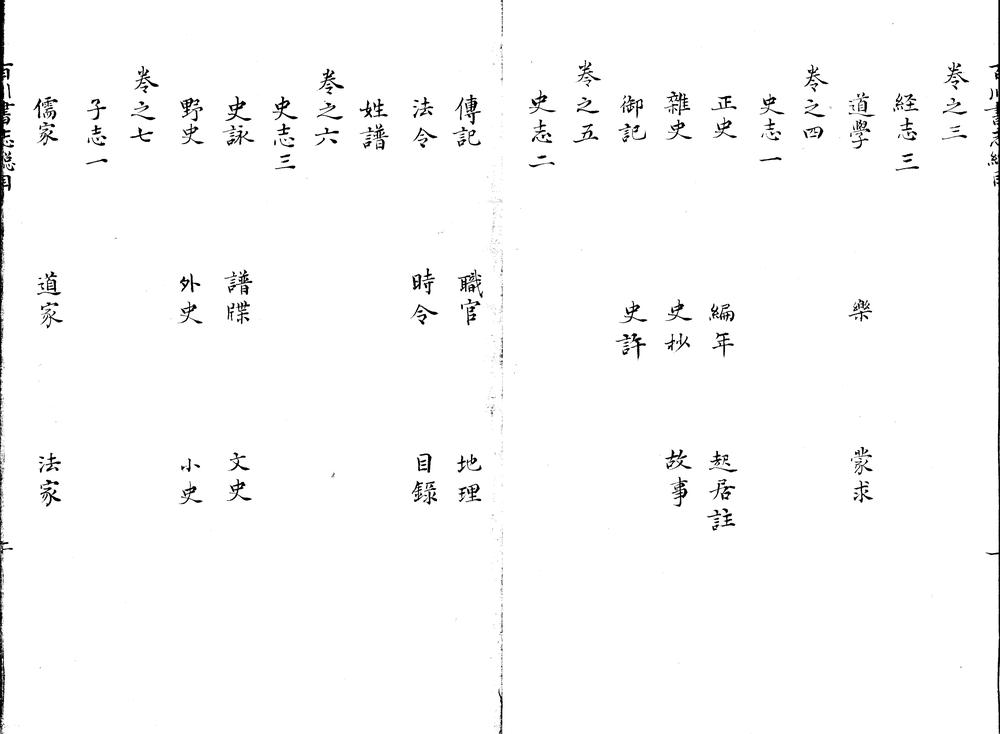 卷之三
経志三
道學 樂 蒙求
卷之四
史志一
正史 編年 起居註
雜史 史抄 故事
御記 史評
卷之五
史志二
傳記 職官 地理
法令 時令 目錄
姓譜
卷之六
史志三
史詠 譜牒 文史
野史 外史 小史
卷之七
子志一
儒家 道家 法家
百川書志總目
二